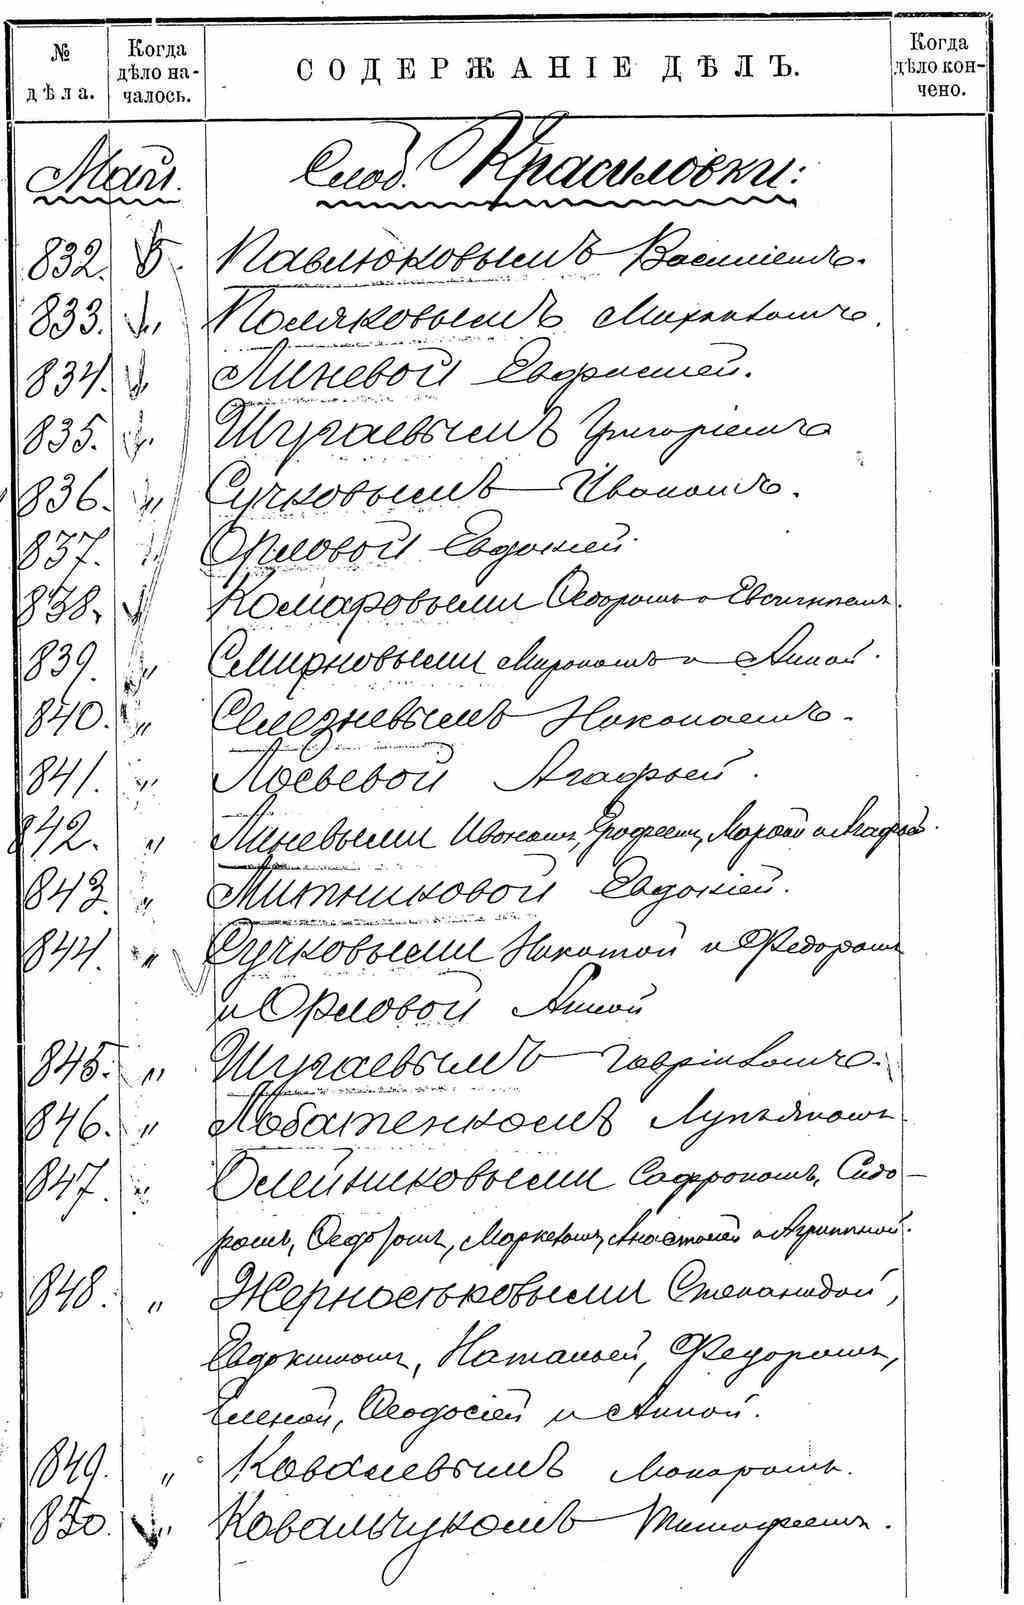 № дѣла. Когда дѣло началось. СОДЕРЖАНІЕ ДѢЛЪ. Когда дѣло кончено.
Май. Слод. Красиловки:
832. 5. Павлюковымъ Василіемъ.
833. „ Поляковымъ Михаиломъ.
834. „ Линевой Евфросиньей.
835. „ Шугаевымъ Григоріемъ
836. „ Сучковымъ Иваномъ.
837. „ Орловой Евдокіей.
838. „ Комаровыми Ѳедоромъ и
839. „ Смирновыми Мирономъ и Анной.
840. „ Селезневымъ Николаемъ.
841. „ Лосьевой Агафьей.
842. „ Линевыми Иваномъ, Ерофеемъ, Марѳой и Агафьей.
843. „ Митниковой Евдокіей.
844. „ Сучковыми Никитой и Федоромъ
и Орловой Анной
845. „ Шугаевымъ Гавріиломъ.
846. „ Лобатенкомъ Лукьяномъ.
847. „ Олейниковыми Сафрономъ, Сидо-
ромъ, Ѳедоромъ, Маркеломъ, Анастасіей и Агриппиной.
848. „ Жерноськовыми Степанидой,
Евдокимомъ, Натальей, Федоромъ,
Еленой, Ѳеодосіей и Анной.
849. „ Ковалевымъ Макаромъ.
850. „ Ковальчукомъ Тимофеемъ.